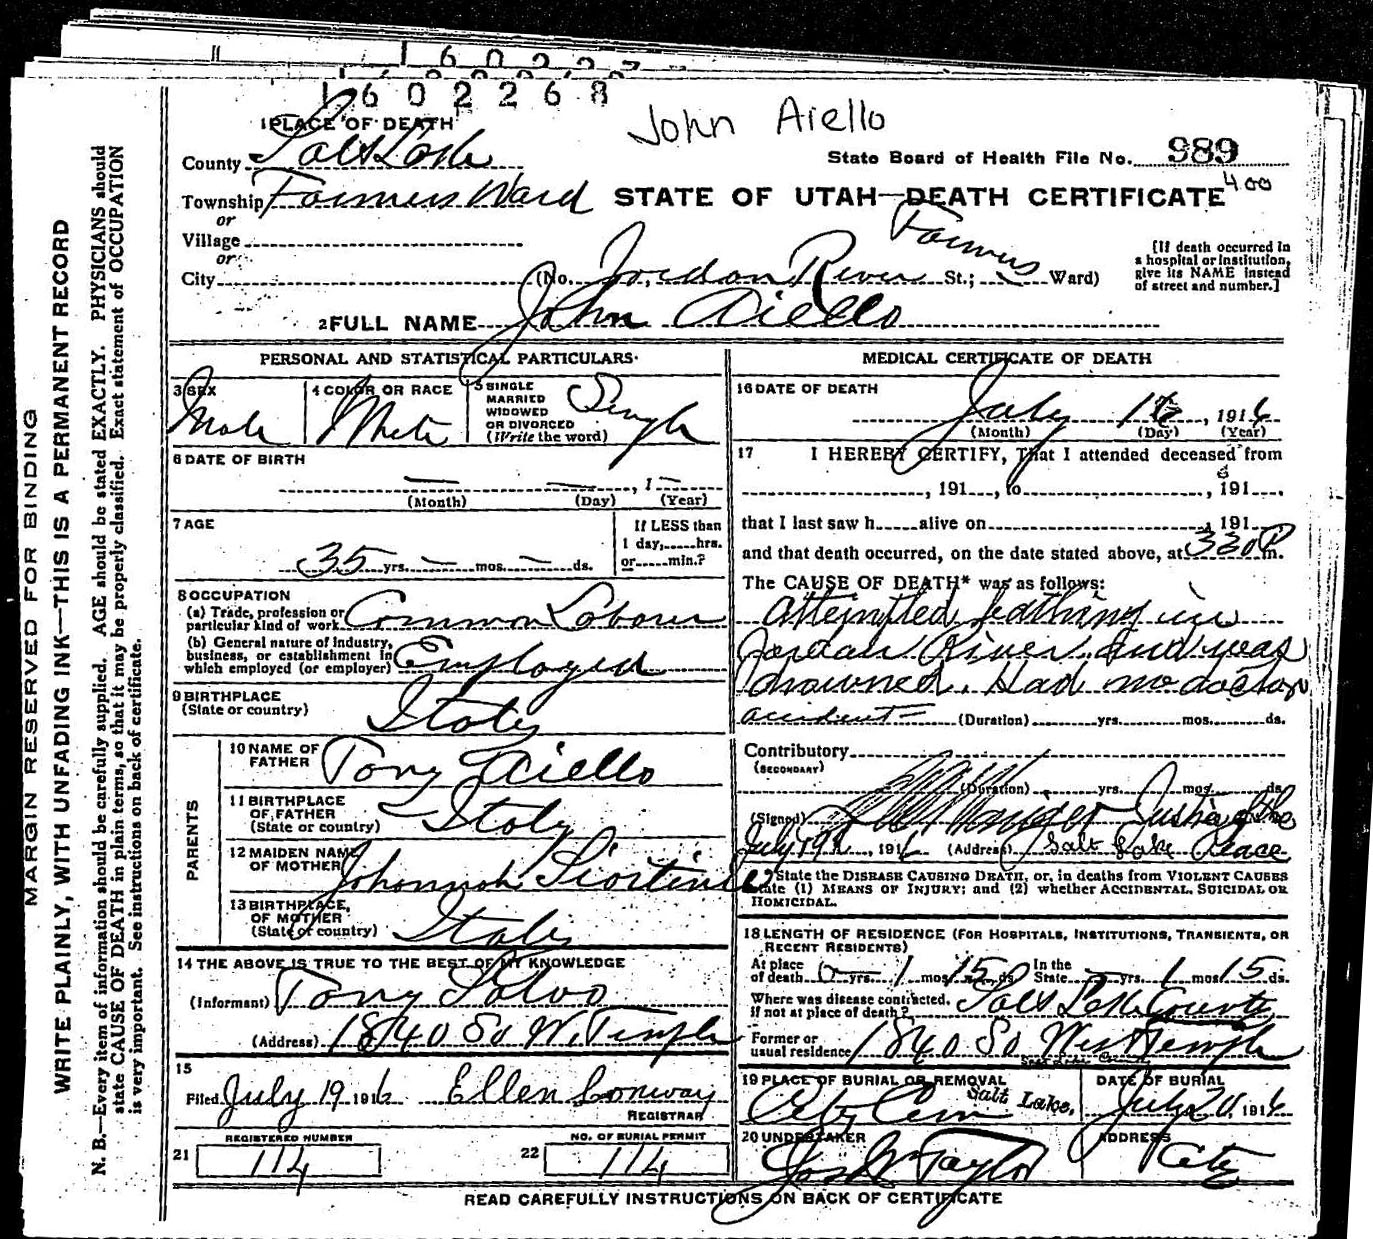 1602268
John Aiello
1 PLACE OF DEATH
County Salt Lake
State Board of Health File No. 989
Township Farmers Ward
STATE OF UTAH—DEATH CERTIFICATE 4.00
or
Village
or
City (No. Jordan River St.; Farmers Ward)
[If death occurred in a hospital or institution, give its NAME instead of street and number.]
2 FULL NAME John Aiello
PERSONAL AND STATISTICAL PARTICULARS
3 SEX Male
4 COLOR OR RACE White
5 SINGLE MARRIED WIDOWED OR DIVORCED (Write the word) Single
6 DATE OF BIRTH
— — , 1—
(Month) (Day) (Year)
7 AGE
35 yrs. — mos. — ds.
If LESS than 1 day, hrs. or min.?
8 OCCUPATION
(a) Trade, profession or particular kind of work Common Laborer
(b) General nature of industry, business, or establishment in which employed (or employer) Employed
9 BIRTHPLACE
(State or country) Italy
PARENTS
10 NAME OF FATHER Tony Aiello
11 BIRTHPLACE OF FATHER (State or country) Italy
12 MAIDEN NAME OF MOTHER Johonnah
13 BIRTHPLACE OF MOTHER (State or country) Italy
14 THE ABOVE IS TRUE TO THE BEST OF MY KNOWLEDGE
(Informant) Tony Salvo
(Address) 1840 So W. Temple
15
Filed July 19 1916 Ellen Conway
REGISTRAR
REGISTERED NUMBER
21 114
NO. OF BURIAL PERMIT
22 114
MEDICAL CERTIFICATE OF DEATH
16 DATE OF DEATH
July 16, 1916
(Month) (Day) (Year)
17 I HEREBY CERTIFY, That I attended deceased from
, 191 , to , 191
that I last saw h alive on , 191
and that death occurred, on the date stated above, at 330 P m.
The CAUSE OF DEATH* was as follows:
attempted bathing in
Jordan River and was
drowned. Had no doctor
accident (Duration) yrs. mos. ds.
Contributory
(SECONDARY)
(Duration) yrs. mos. ds.
(Signed) Justice of the
July 19th, 1916 (Address) Salt Lake Peace
*State the DISEASE CAUSING DEATH, or, in deaths from VIOLENT CAUSES state (1) MEANS OF INJURY; and (2) whether ACCIDENTAL, SUICIDAL OR HOMICIDAL.
18 LENGTH OF RESIDENCE (FOR HOSPITALS, INSTITUTIONS, TRANSIENTS, OR RECENT RESIDENTS)
At place of death 0 yrs. 1 mos. 15 ds. In the State — yrs. 1 mos. 15 ds.
Where was disease contracted, if not at place of death? Salt Lake County
Former or usual residence 1840 So West Temple
Salt Lake County
19 PLACE OF BURIAL OR REMOVAL
City Cem Salt Lake.
DATE OF BURIAL
July 20, 1916
20 UNDERTAKER
Jos Wm Taylor
ADDRESS
City
READ CAREFULLY INSTRUCTIONS ON BACK OF CERTIFICATE
MARGIN RESERVED FOR BINDING
WRITE PLAINLY, WITH UNFADING INK—THIS IS A PERMANENT RECORD
N. B.—Every item of information should be carefully supplied. AGE should be stated EXACTLY. PHYSICIANS should
state CAUSE OF DEATH in plain terms, so that it may be properly classified. Exact statement of OCCUPATION
is very important. See instructions on back of certificate.